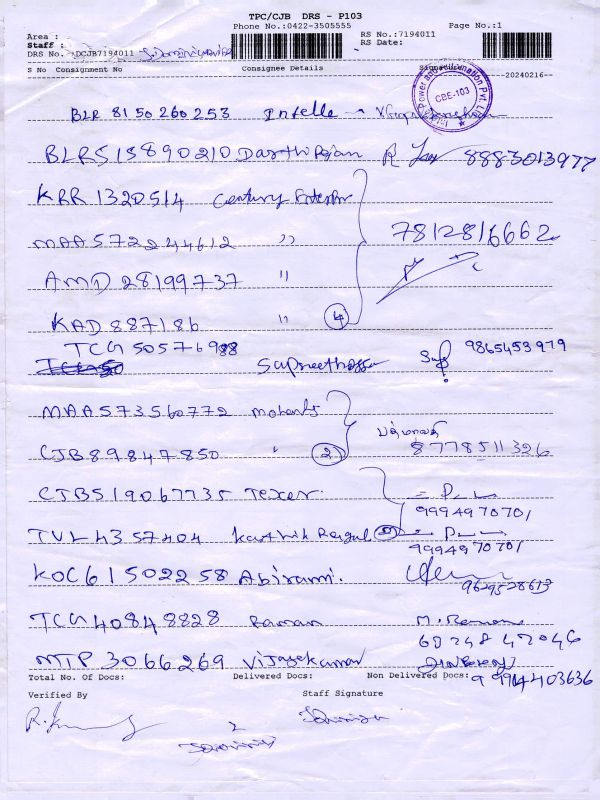 TPC/CJB DRS - P103
Phone No.:0422-3505555
Page No.:1
Area :
Staff :
RS No.:7194011
DRS No. :DCJB7194011
RS Date:
S No Consignment No Consignee Details Signature 20240216
CBE-103
BLR 8150260253 Intelle
BLR515890210 Darthi Rajan 8883013977
KRR 1320514 Century Enterpr
MAA572244612 " 7812816662
AMD 28199737 "
KAD 887186 " 4
TCG 50576988
Supreethaggu 9865453979
MAA573560772 mohants
பத்மாவதி
CJB89847850 " 2 8778511326
CJB519067735 Texer
9994970701
TVL4357404 Karthik
9994970701
KOC61502258 Abirami.
9629528613
TCG40848828 Raman M. Raman
MTP 3066269 Vijayakumar
Total No. Of Docs: Delivered Docs: Non Delivered Docs:
Verified By Staff Signature